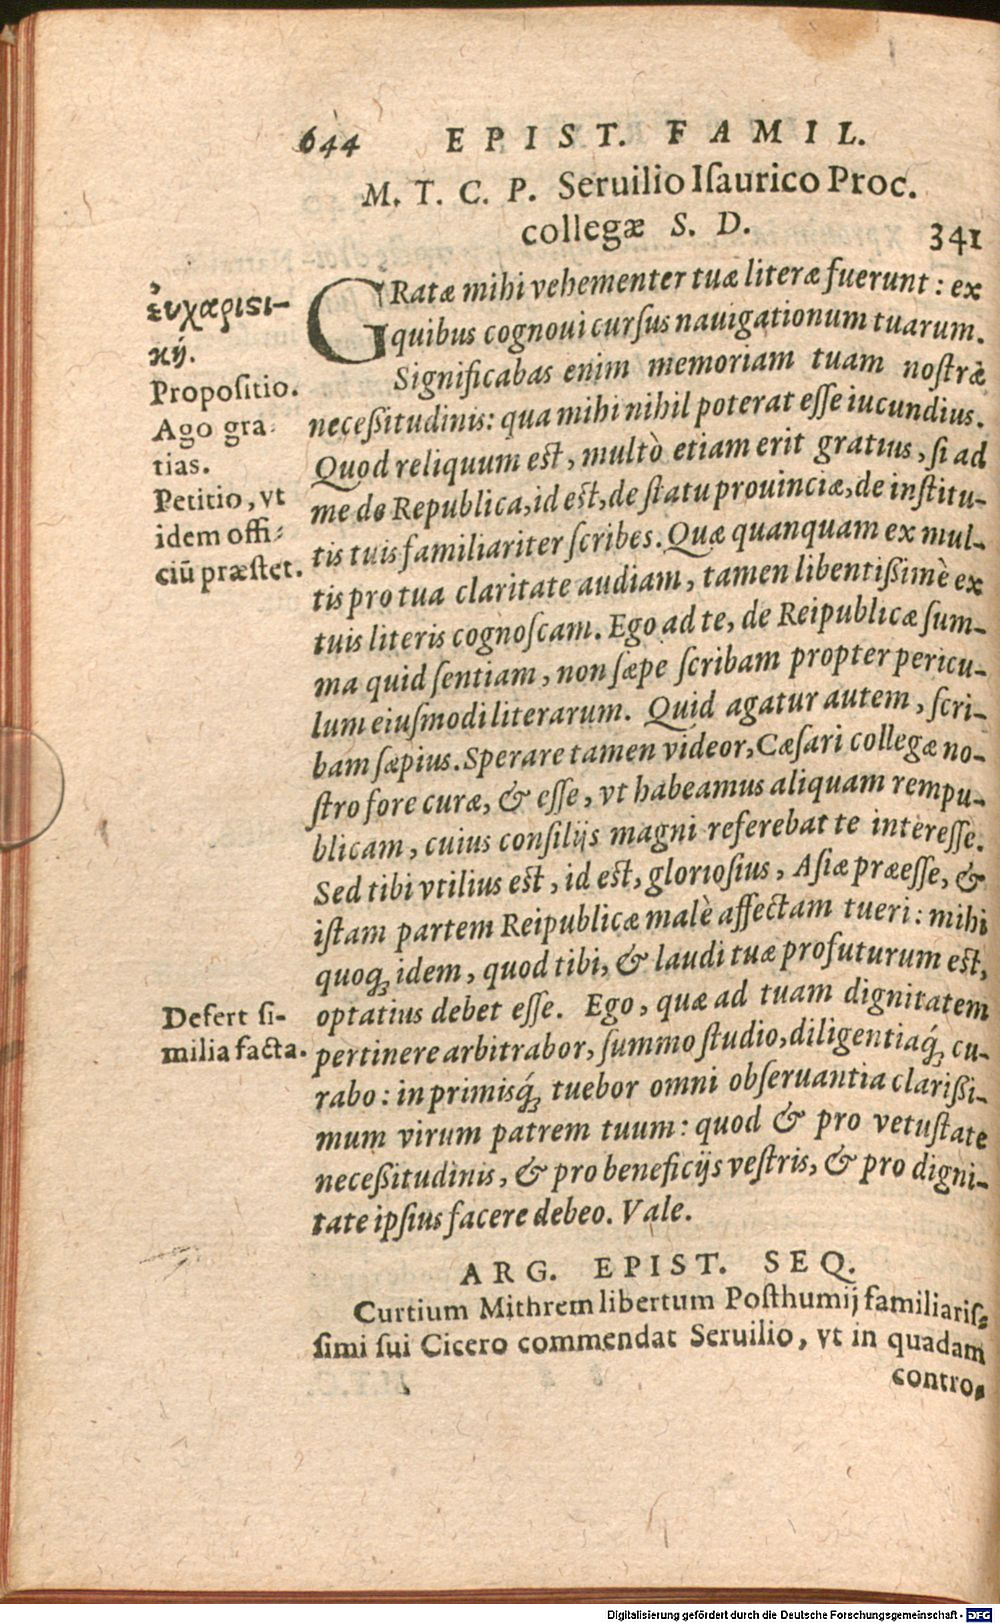 644 EPIST. FAMIL.
M. T. C. P. Seruilio Iſaurico Proc.
collegæ S. D. 341
GRatæ mihi vehementer tuæ literæ fuerunt: ex
quibus cognoui curſus nauigationum tuarum.
Significabas enim memoriam tuam noſtræ
neceßitudinis: qua mihi nihil poterat eſſe iucundius.
Quod reliquum est, multò etiam erit gratius, ſi ad
me de Republica, id est, de ſtatu prouinciæ, de inſtitu-
tis tuis familiariter ſcribes. Quæ quanquam ex mul-
tis pro tua claritate audiam, tamen libentißimè ex
tuis literis cognoſcam. Ego ad te, de Reipublicæ ſum-
ma quid ſentiam, non ſæpe ſcribam propter pericu-
lum eiuſmodi literarum. Quid agatur autem, ſcri-
bam ſæpius. Sperare tamen videor, Cæſari collegæ no-
ſtro fore curæ, & eſſe, vt habeamus aliquam rempu-
blicam, cuius conſilijs magni referebat te intereſſe.
Sed tibi vtilius est, id est, glorioſius, Aſiæ præeſſe, &
iſtam partem Reipublicæ malè affectam tueri: mihi
quoq; idem, quod tibi, & laudi tuæ profuturum est,
optatius debet eſſe. Ego, quæ ad tuam dignitatem
pertinere arbitrabor, ſummo ſtudio, diligentiaq́; cu-
rabo: in primisq́; tuebor omni obſeruantia clarißi-
mum virum patrem tuum: quod & pro vetuſtate
neceßitudinis, & pro beneficijs veſtris, & pro digni-
tate ipſius facere debeo. Vale.
ἐυχαριστι-
κή.
Propoſitio.
Ago gra-
tias.
Petitio, vt
idem offi-
ciū præſtet.
Defert ſi-
milia facta.
ARG. EPIST. SEQ.
Curtium Mithrem libertum Poſthumij familiariſ-
ſimi ſui Cicero commendat Seruilio, vt in quadam
contro-
Digitalisierung gefördert durch die Deutsche Forschungsgemeinschaft - DFG